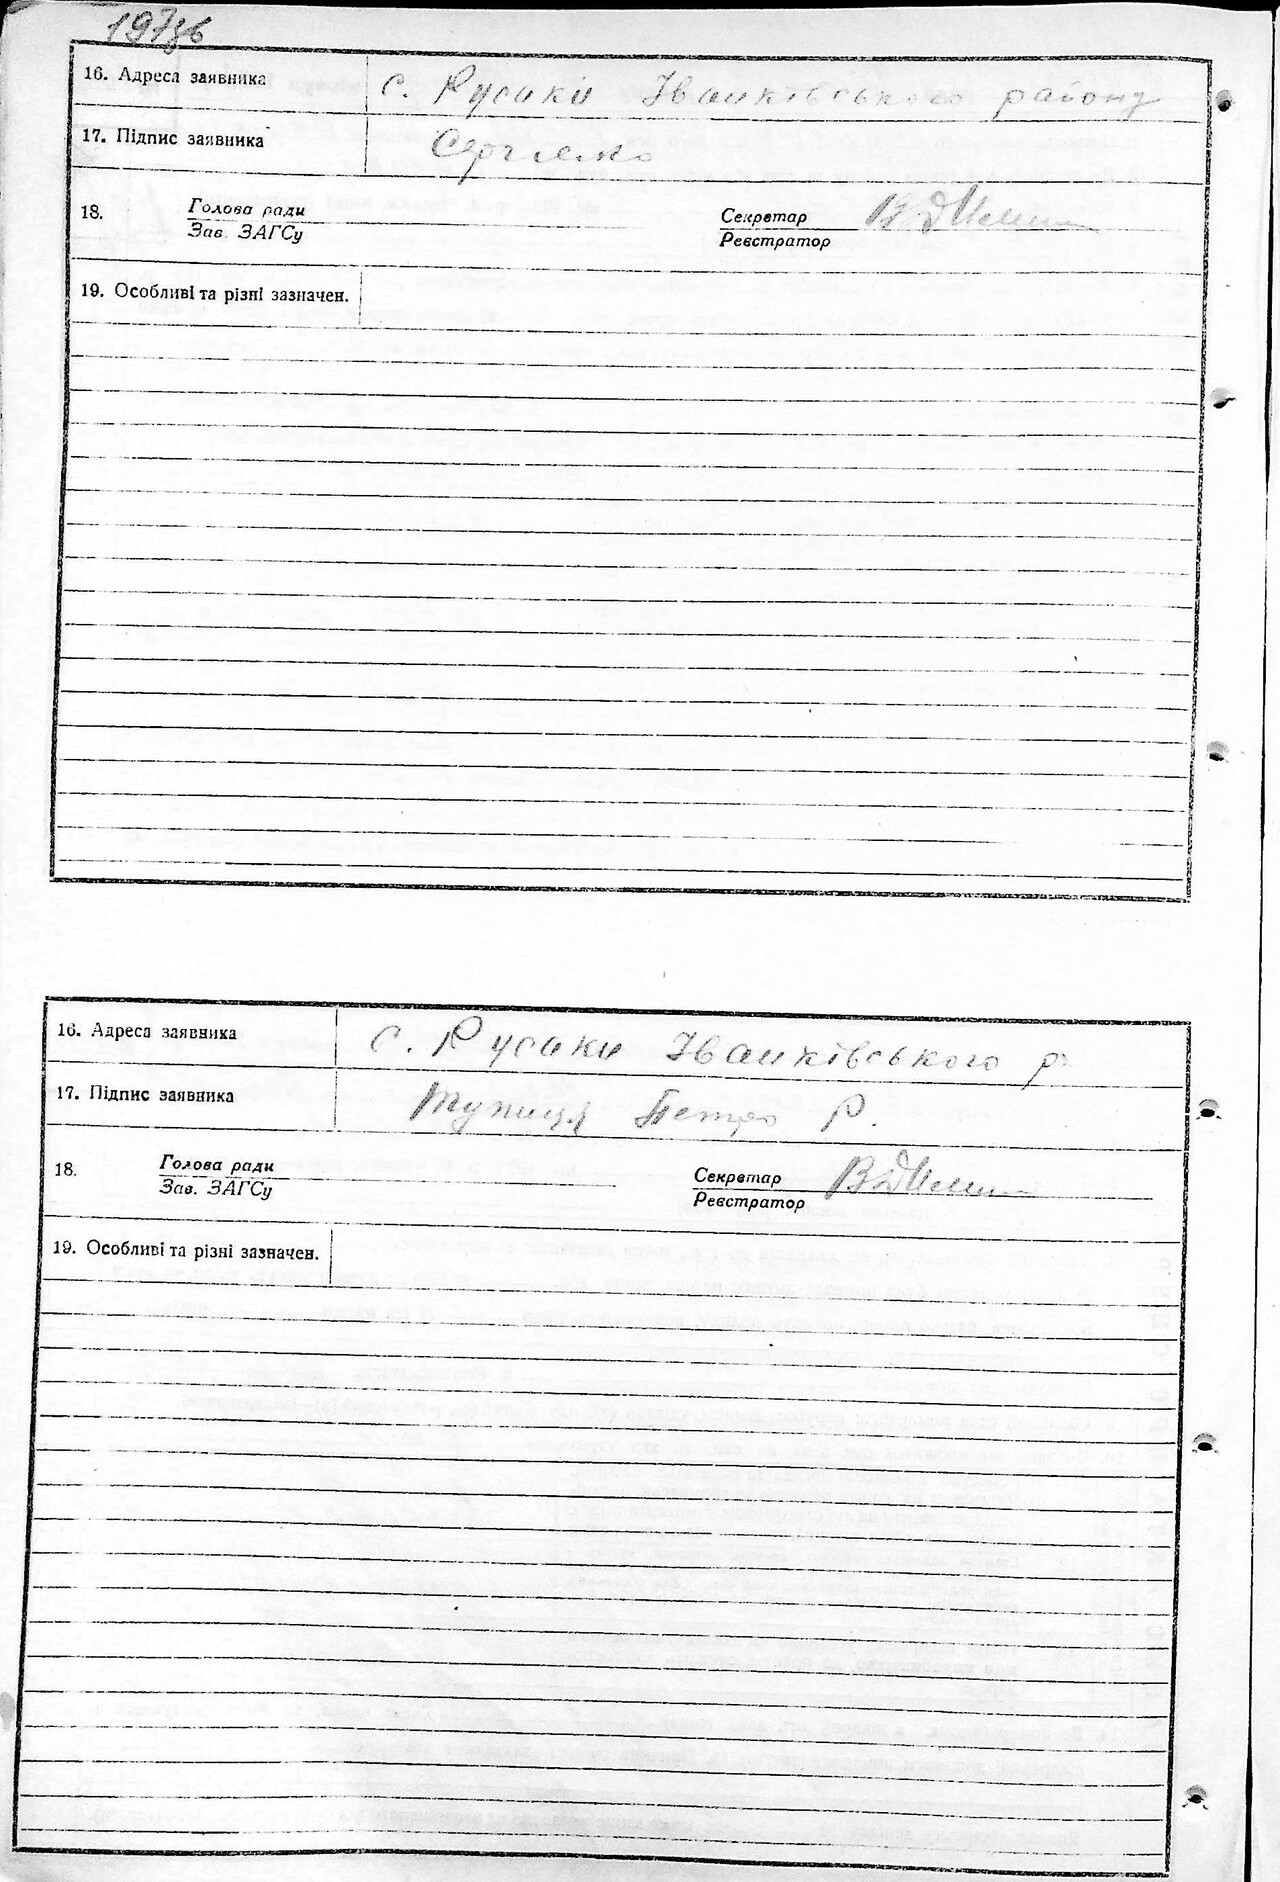 197зв
16. Адреса заявника с. Русаки Іванківського району
17. Підпис заявника Сергієнко
18. Голова ради Секретар
Зав. ЗАГСу Реєстратор
19. Особливі та різні зазначен.
16. Адреса заявника с. Русаки Іванківського р.
17. Підпис заявника Тупиця Петро Р.
18. Голова ради Секретар
Зав. ЗАГСу Реєстратор
19. Особливі та різні зазначен.